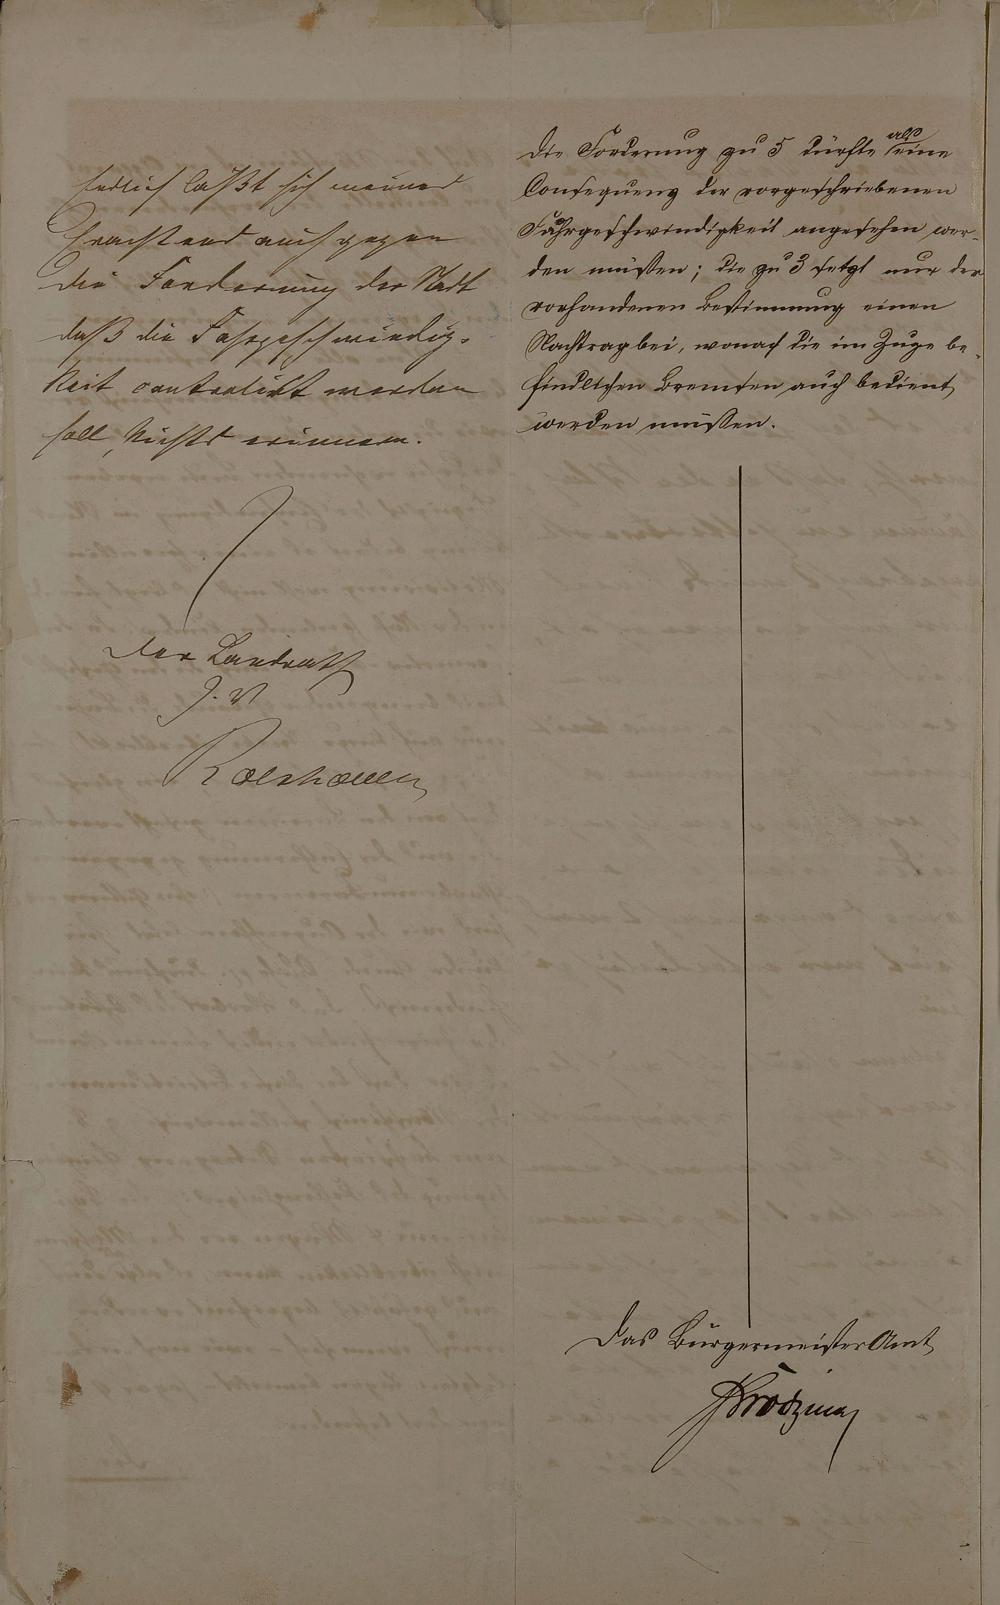 Endlich läßt sich meines
Erachtens auch gegen
die Forderung der Stadt
daß die Fahrgeschwindig-
keit controlirt werden
soll, Nichts erinnern.
Der Landrath
J. V
Die Forderung zu 5 dürfte als eine
Consequenz der vorgeschriebenen
Fahrgeschwindigkeit angesehen wer-
den müssen; die zu 3 setzt nur der
vorhandenen Bestimmung einen
Nachtrag bei, wonach die im Zuge be-
findlichen Bremsen auch bedient
werden müssen.
Das Bürgermeister Amt